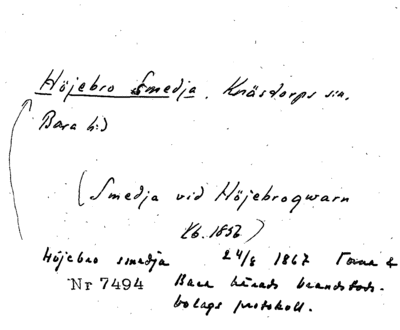 Höjebro Smedja. Knästorps sn.
Bara h:d
(Smedja vid Höjebroqwarn
Kb. 1856)
Höjebro smedja 24/8 1867 Torna &
Nr 7494 Bara härads brandstods-
bolags protokoll.